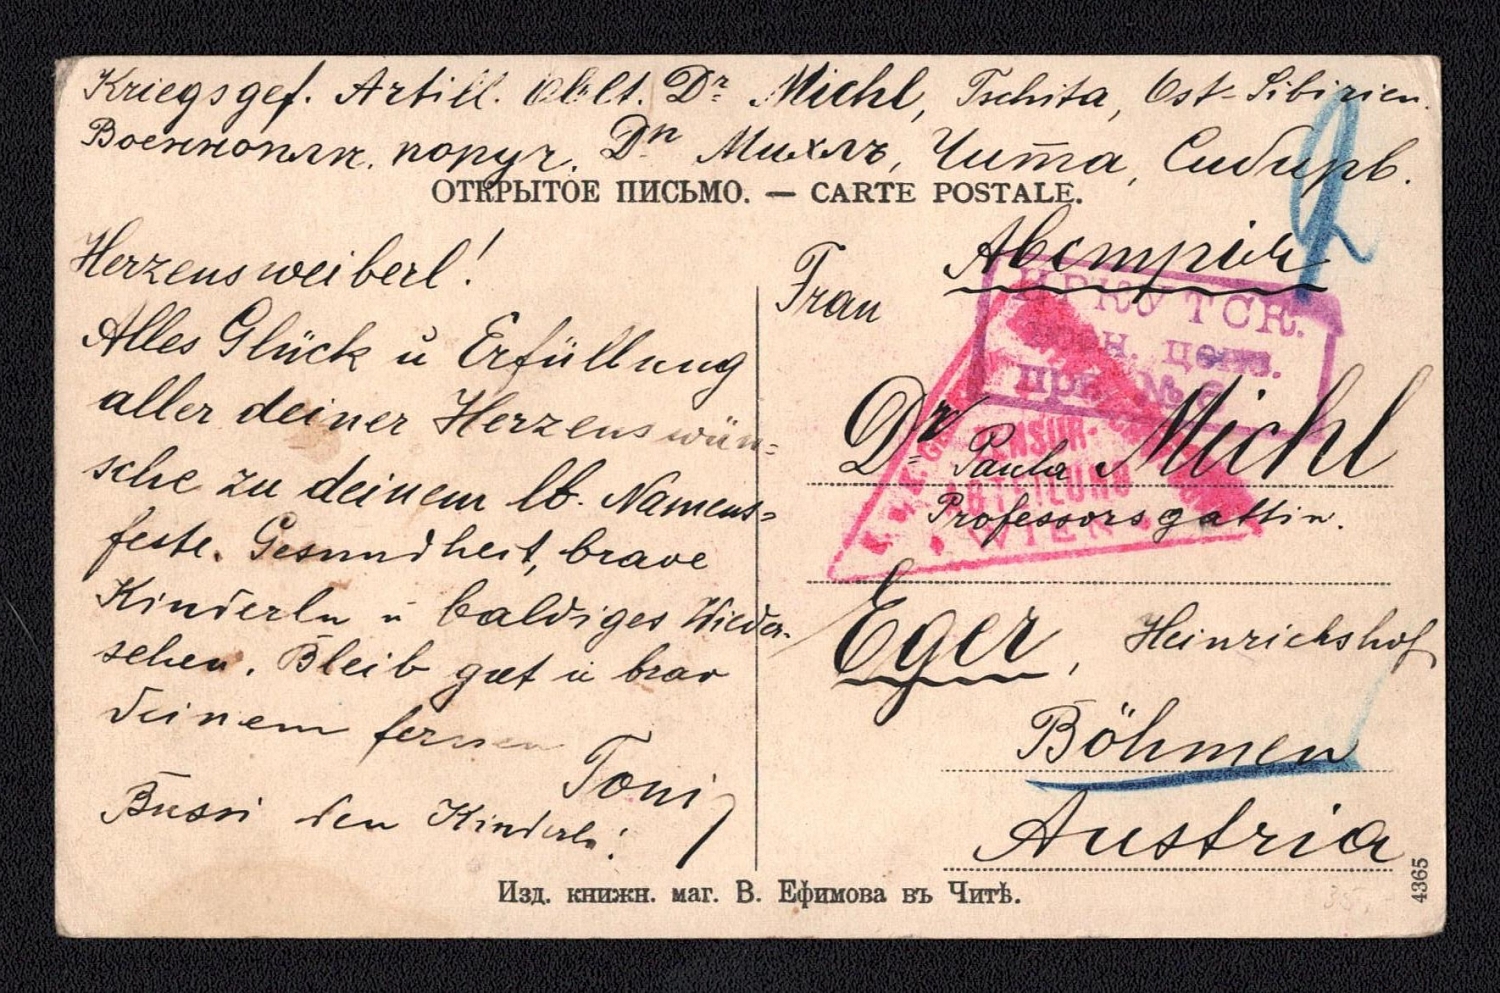 Kriegsgef. Artill. Oblt. Dr Michl, Tschita, Ost-Sibirien.
Военнопл. поруч. Дръ Михлъ, Чита, Сибирь.
ОТКРЫТОЕ ПИСЬМО. — CARTE POSTALE.
Herzensweiberl!
Alles Glück ŭ Erfüllung
aller deiner Herzenswün-
sche zu deinem lb. Namens-
feste. Gesundheit, brave
Kinderln ŭ baldiges Wieder-
sehen. Bleib gut ŭ brav
deinem fernen
Toni
Bussi den Kinderln!
Frau
Dr Paula Michl
Professorsgattin.
Eger, Heinrichshof
Böhmen
Austria
ИРКУТСК.
воен. ценз.
№ 6
ZENSUR-
ABTEILUNG
WIEN
Изд. книжн. маг. В. Ефимова въ Читѣ.
4365
35.-